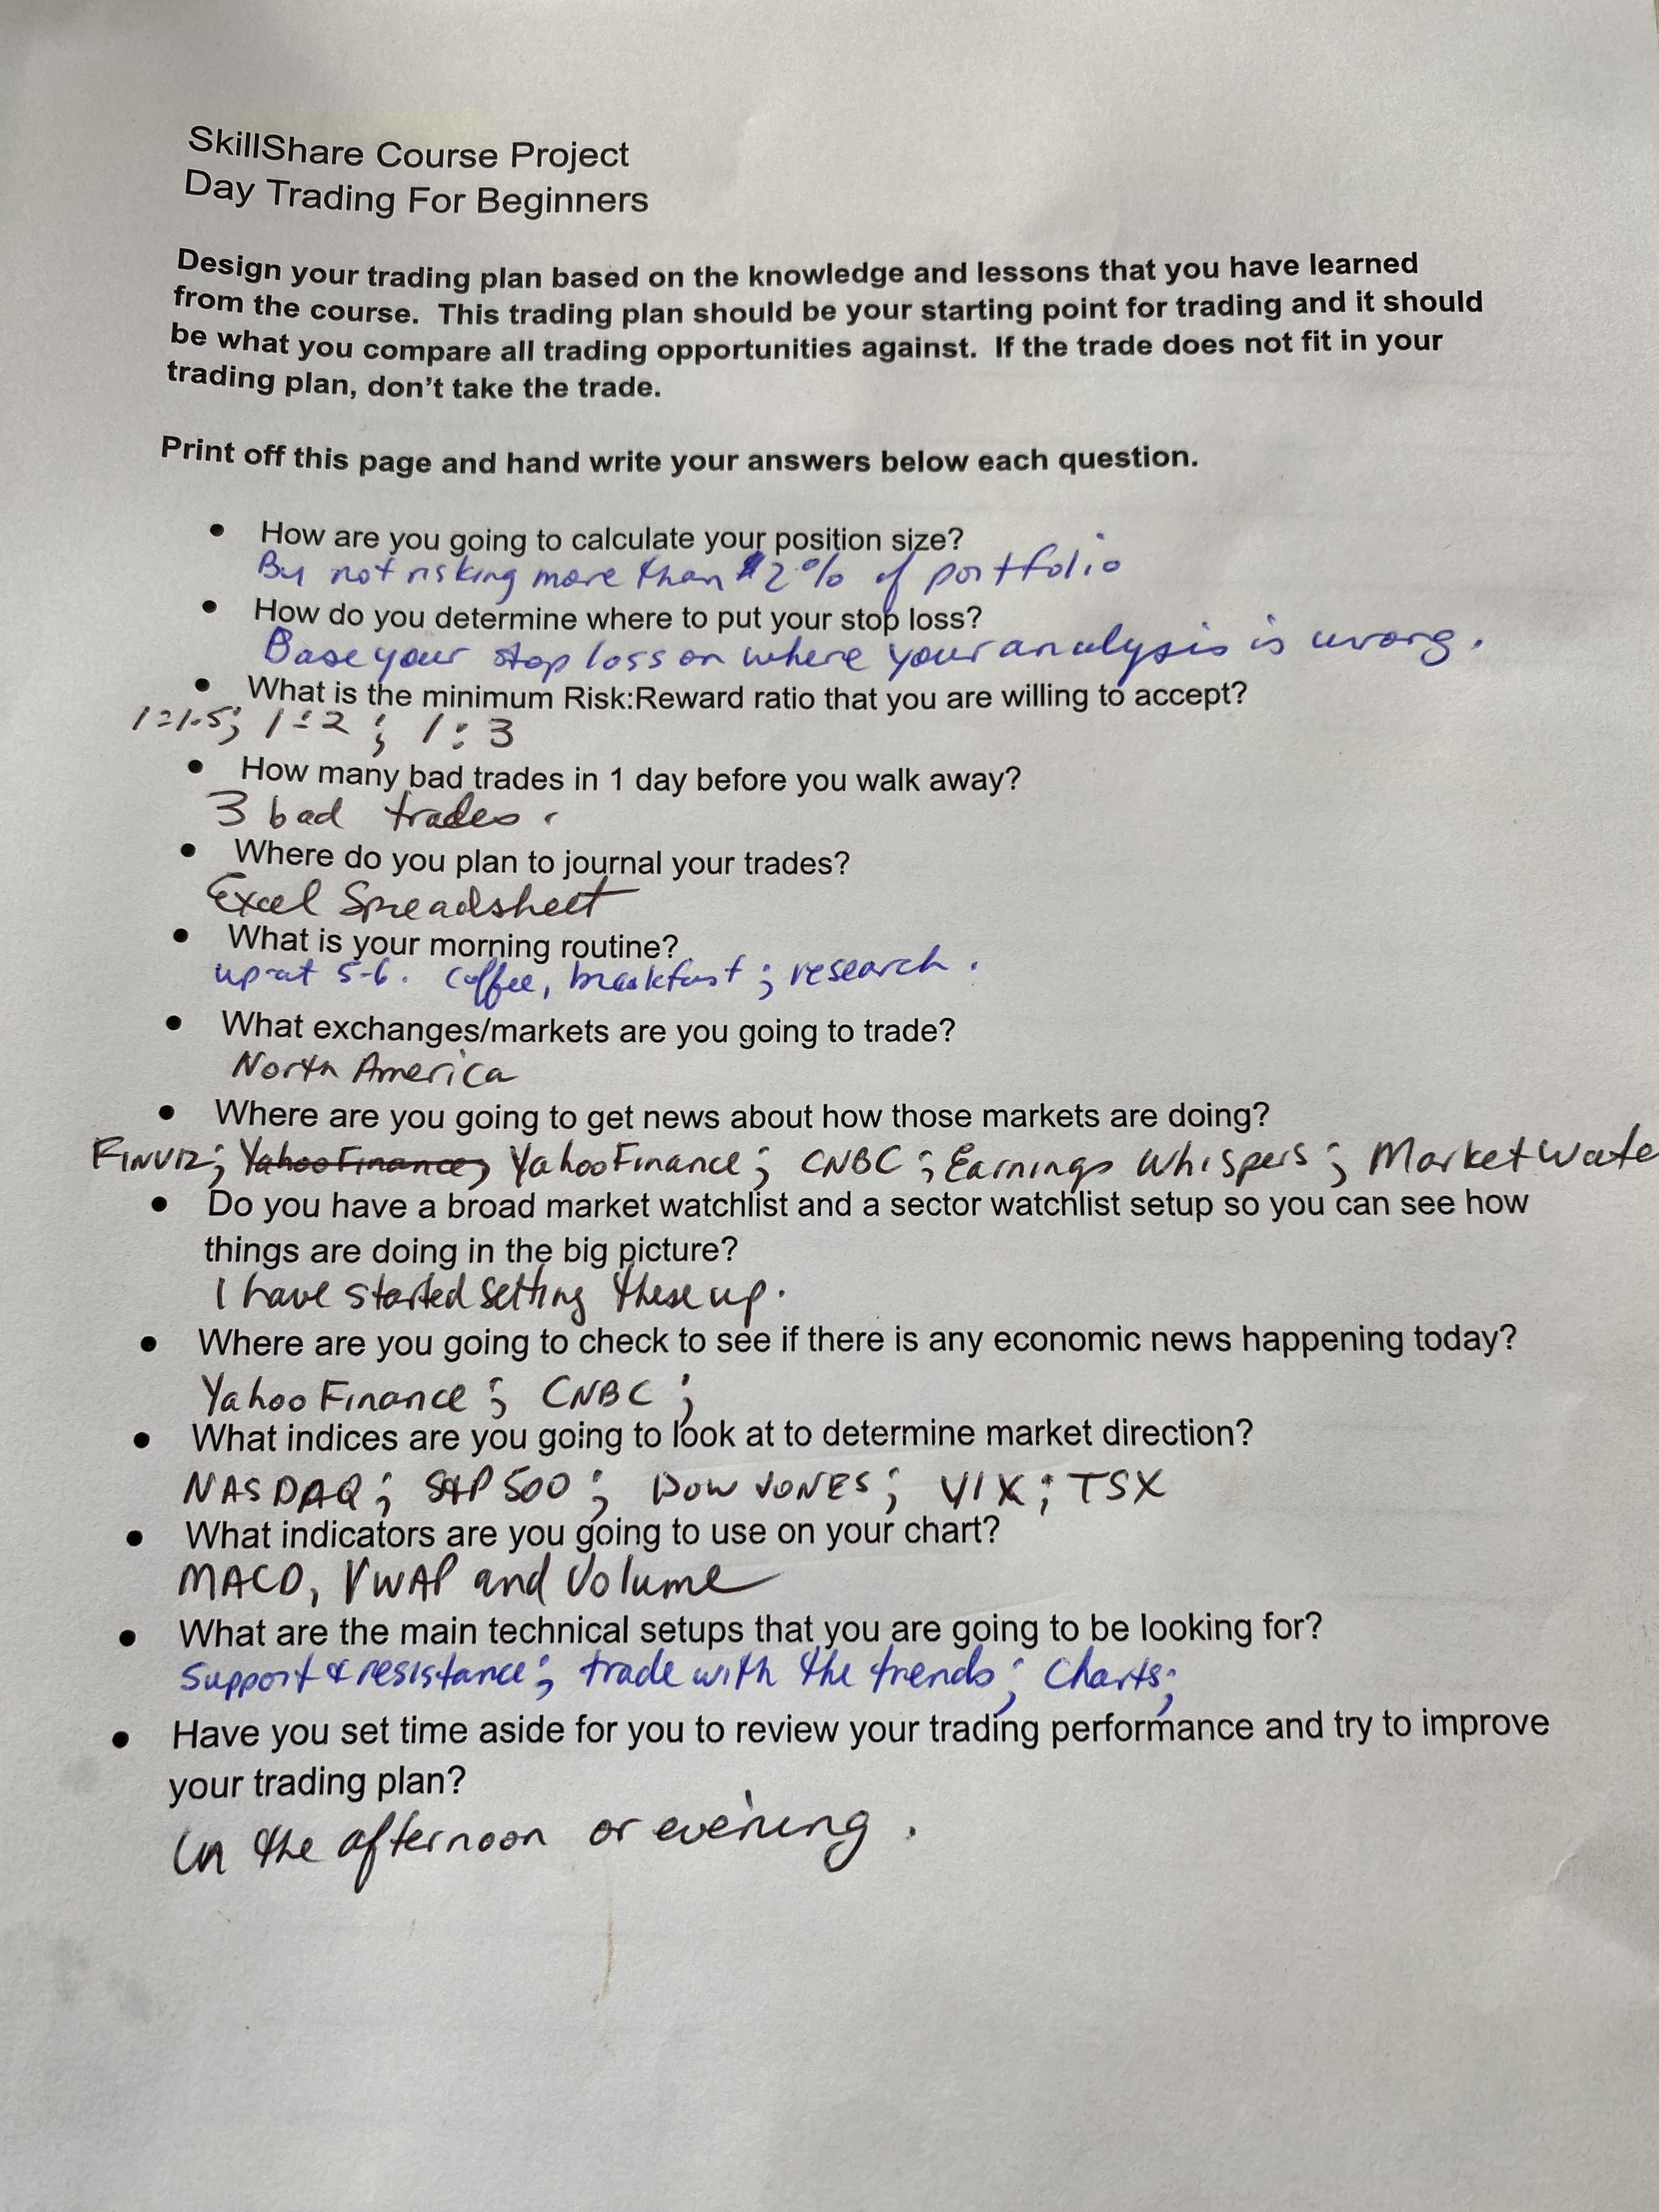 SkillShare Course Project
Day Trading For Beginners
Design your trading plan based on the knowledge and lessons that you have learned
from the course. This trading plan should be your starting point for trading and it should
be what you compare all trading opportunities against. If the trade does not fit in your
trading plan, don't take the trade.
Print off this page and hand write your answers below each question.
• How are you going to calculate your position size?
By not risking more than 2% of portfolio
• How do you determine where to put your stop loss?
Base your stop loss on where your analysis is wrong.
• What is the minimum Risk:Reward ratio that you are willing to accept?
1:1.5; 1:2; 1:3
• How many bad trades in 1 day before you walk away?
3 bad trades.
• Where do you plan to journal your trades?
Excel Spreadsheet
• What is your morning routine?
up at 5-6. Coffee, breakfast; research.
• What exchanges/markets are you going to trade?
North America
• Where are you going to get news about how those markets are doing?
FINVIZ; Yahoo Finance; Yahoo Finance; CNBC; Earnings Whispers; Market Watc
• Do you have a broad market watchlist and a sector watchlist setup so you can see how
things are doing in the big picture?
I have started setting these up.
• Where are you going to check to see if there is any economic news happening today?
Yahoo Finance; CNBC;
• What indices are you going to look at to determine market direction?
NASDAQ; S&P 500; DOW JONES; VIX; TSX
• What indicators are you going to use on your chart?
MACD, VWAP and Volume
• What are the main technical setups that you are going to be looking for?
Support & resistance; trade with the trends; Charts;
• Have you set time aside for you to review your trading performance and try to improve
your trading plan?
In the afternoon or evening.